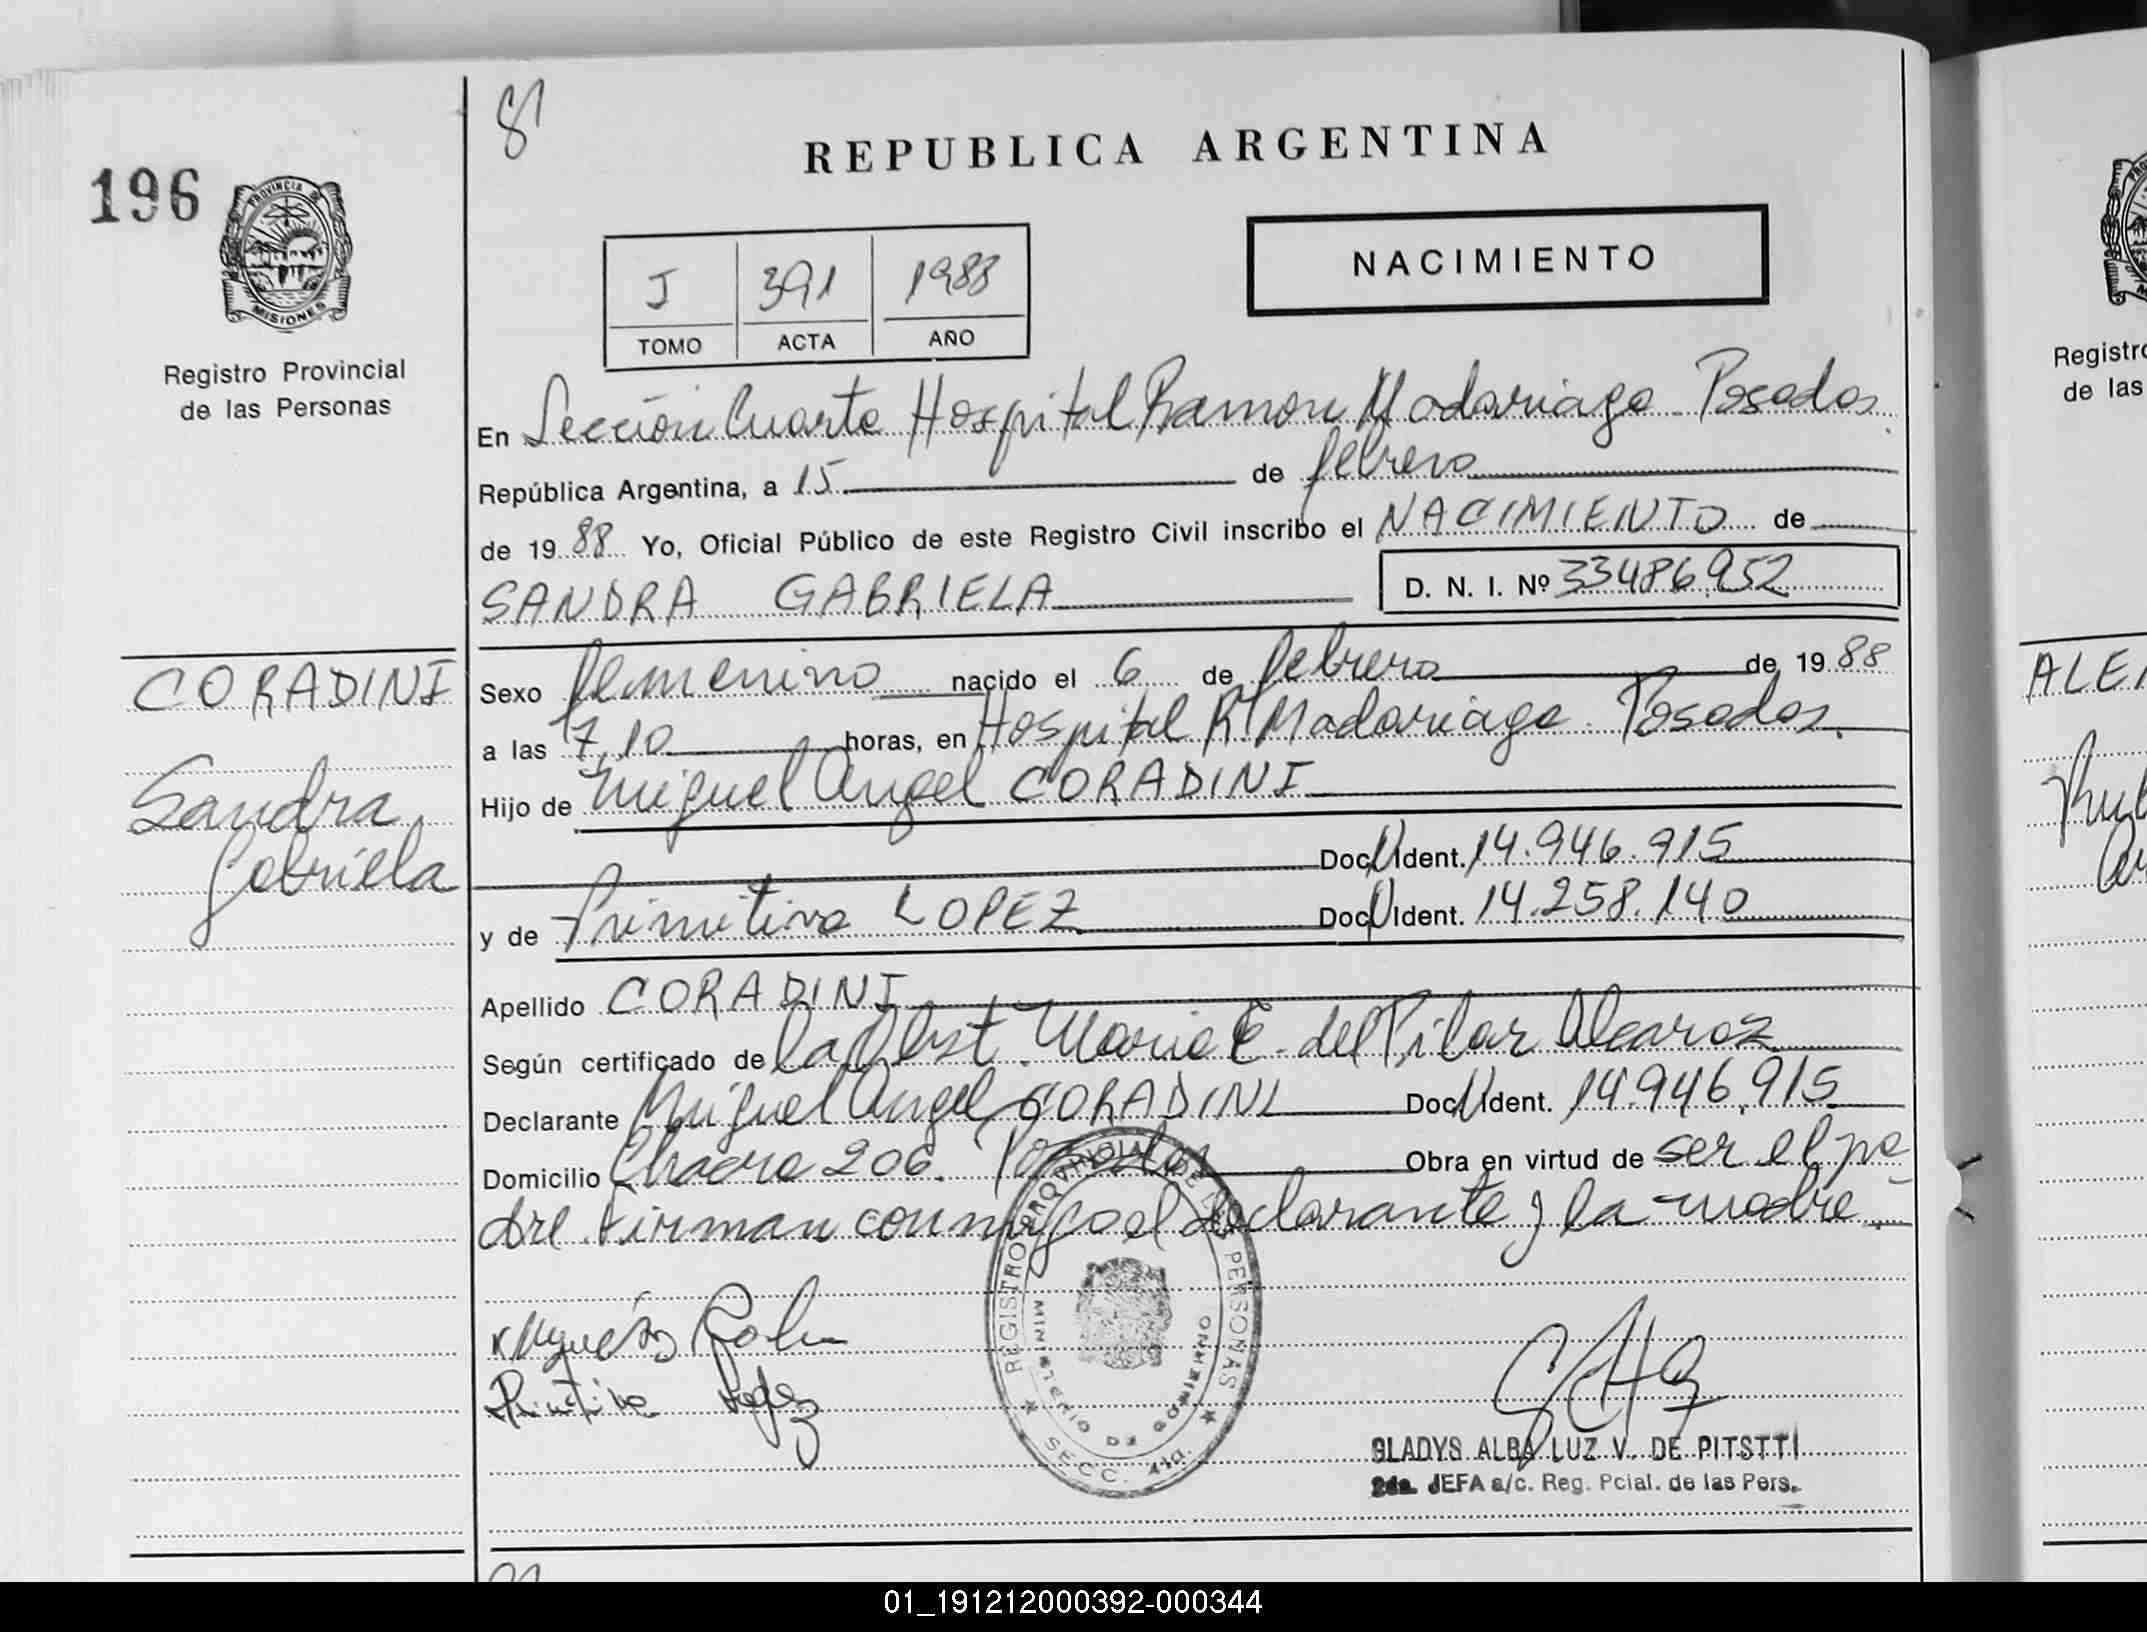 81
REPUBLICA ARGENTINA
196
PROVINCIA DE
MISIONES
Registro Provincial
de las Personas
J 391 1988
TOMO ACTA AÑO
NACIMIENTO
En Sección Cuarta Hospital Ramon Madariaga Posadas.
República Argentina, a 15 de febrero
de 19 88 Yo, Oficial Público de este Registro Civil inscribo el NACIMIENTO de
SANDRA GABRIELA D. N. I. Nº 33486952
CORADINI
Sandra
Gabriela
Sexo femenino nacido el 6 de febrero de 19 88
a las 7,10 horas, en Hospital R. Madariaga. Posadas.
Hijo de Miguel Angel CORADINI
Doc. Ident. 14.946.915
y de Primitiva LOPEZ Doc. Ident. 14.258.140
Apellido CORADINI
Según certificado de la Obst. Maria E. del Pilar Alcaraz
Declarante Miguel Angel CORADINI Doc. Ident. 14.946.915
Domicilio Chacra 206. Posadas Obra en virtud de ser el pa
dre. Firman conmigo el declarante y la madre.-
REGISTRO PROVINCIAL DE LAS PERSONAS
MINISTERIO DE GOBIERNO
SECC. 4ta.
Primitiva Lopez
GLADYS ALBA LUZ V. DE PITSTTI
2da. JEFA a/c. Reg. Pcial. de las Pers.
Registro
de las
ALE
01_191212000392-000344